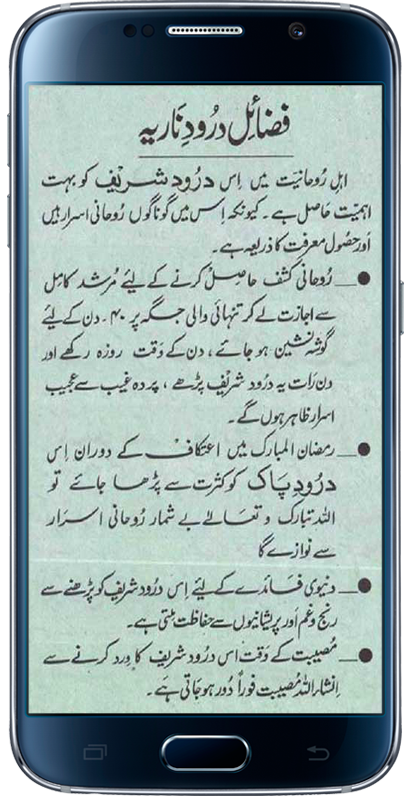 فضائل درود ناریہ
اہل رُوحانیّت میں اِس درود شریف کو بہت
اہمیّت حاصل ہے۔ کیونکہ اِس میں گوناگوں رُوحانی اسرار ہیں
اور حصُول معرفت کا ذریعہ ہے۔
● — رُوحانی کشف حاصِل کرنے کے لیئے مُرشد کامِل
سے اجازت لے کر تنہائی والی جگہ پر ۴۰۔ دن کے لیئے
گوشہ نشین ہو جائے، دن کے وَقت روزہ رکھے اور
دن رَات یہ درود شریف پڑھے، پردہ غیب سے عجیب
اسرار ظاہر ہوں گے۔
● — رمضان المبارک میں اعتکاف کے دوران اِس
درودِ پَاک کو کثرت سے پڑھا جائے تو
اللہ تبارک و تعالےٰ بے شمار رُوحانی اسرَار
سے نوازے گا
● — دنیوی فائدے کے لیئے اِس درود شریف کو پڑھنے سے
رنج و غم اور پریشانیوں سے حفاظت ملتی ہے۔
● — مُصیبت کے وَقت اس درود شریف کا وِرد کرنے سے
اِنشاء اللہ مُصیبت فوراً دُور ہو جاتی ہَے۔